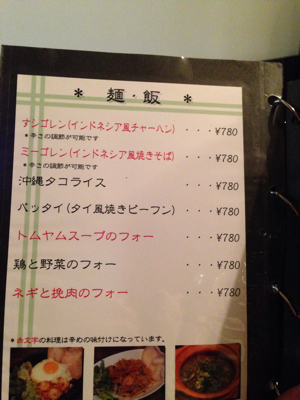 * 麺・飯 *
ナシゴレン(インドネシア風チャーハン) ・・・¥780
*辛さの調節が可能です
ミーゴレン(インドネシア風焼きそば) ・・・¥780
*辛さの調節が可能です
沖縄タコライス ・・・¥780
パッタイ(タイ風焼きビーフン) ・・・¥780
トムヤムスープのフォー ・・・¥780
鶏と野菜のフォー ・・・¥780
ネギと挽肉のフォー ・・・¥780
*赤文字の料理は辛めの味付けになっています。